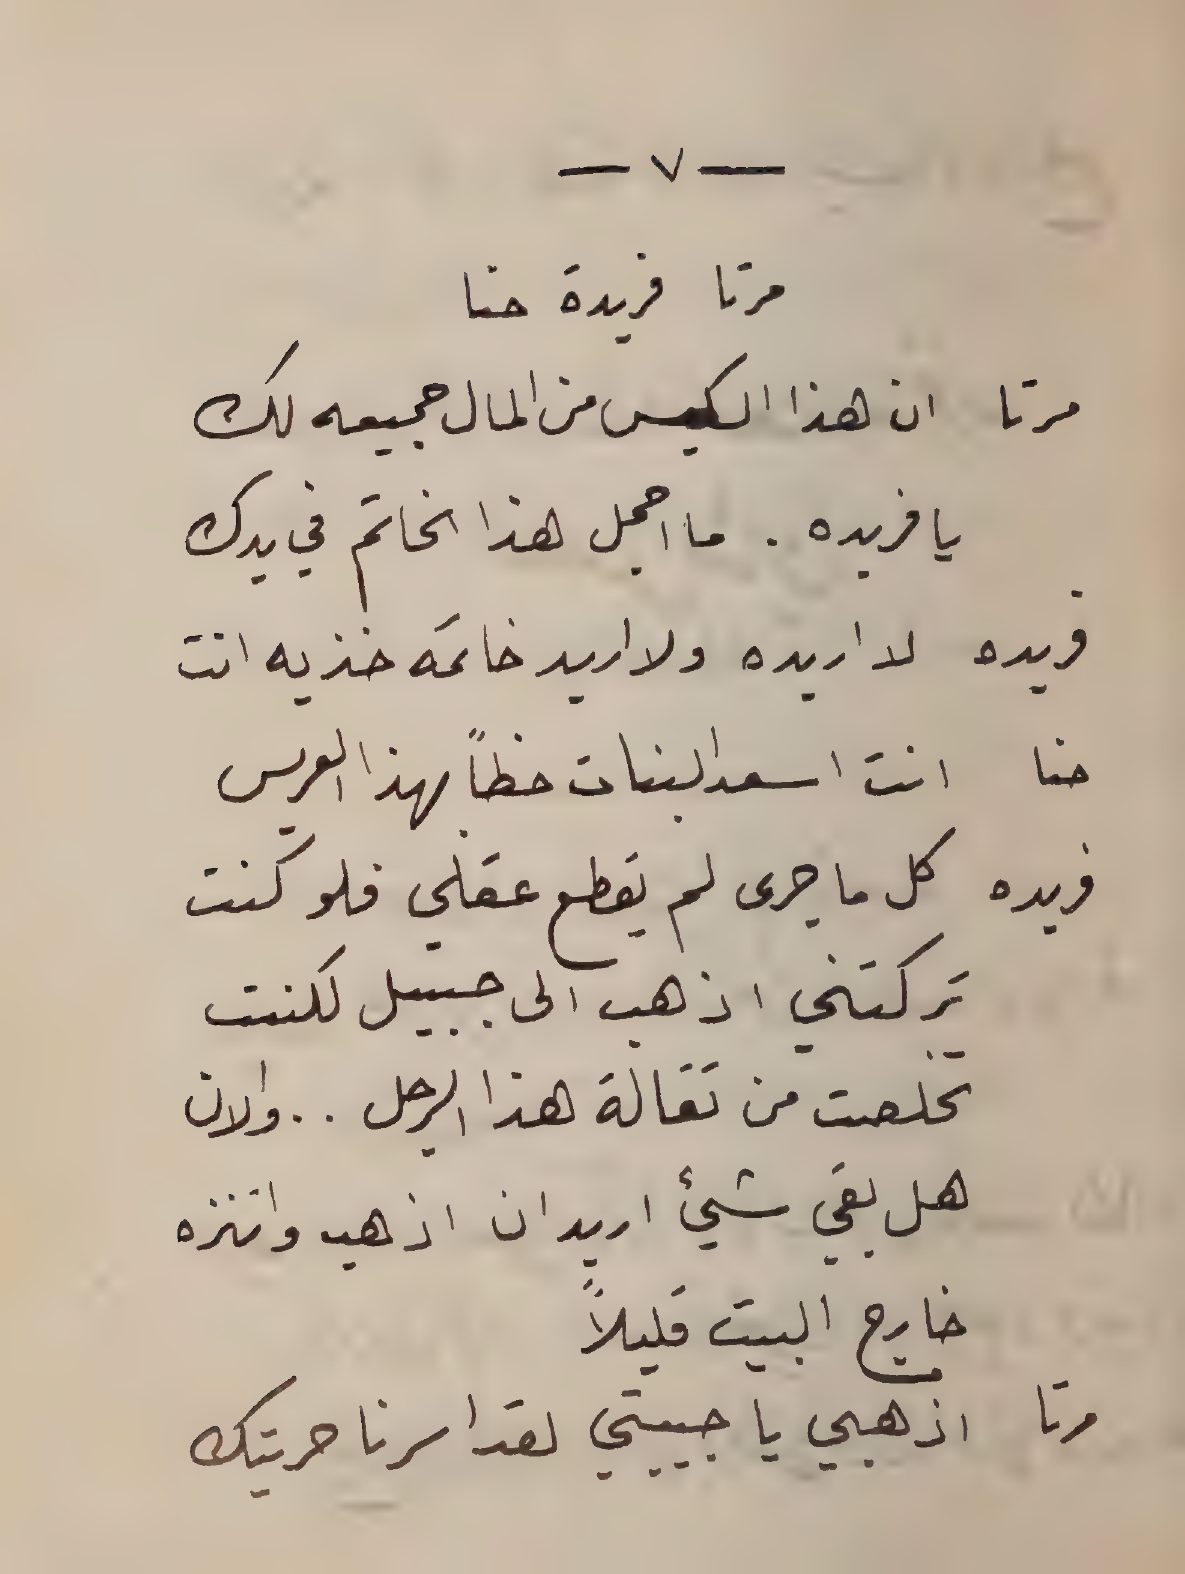 — ٧ —
مرتا فريدة حنا
مرتا ان هذا الكيس من المال جميعه لك
يا فريده . ما اجمل هذا الخاتم في يدك
فريده لا اريده ولا اريد خاتمه خذيه انت
حنا انت اسعد البنات حظاً بهذا العريس
فريده كل ما جرى لم يقطع عقلي فلو كنت
تركتني اذهب الى جبيل لكنت
تخلصت من ثقالة هذا الرجل . . والان
هل بقي شيئ اريد ان اذهب واتنزه
خارج البيت قليلاً
مرتا اذهبي يا حبيبتي لقد اسرنا حريتك